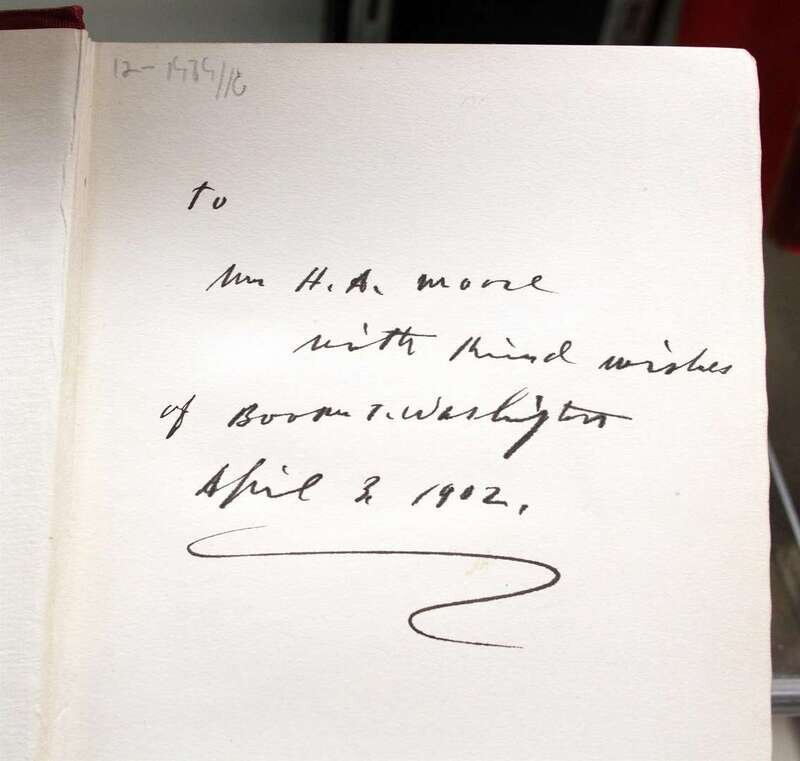 To
Mr H. A. Moore
with kind wishes
of Booker T. Washington
April 3, 1902.